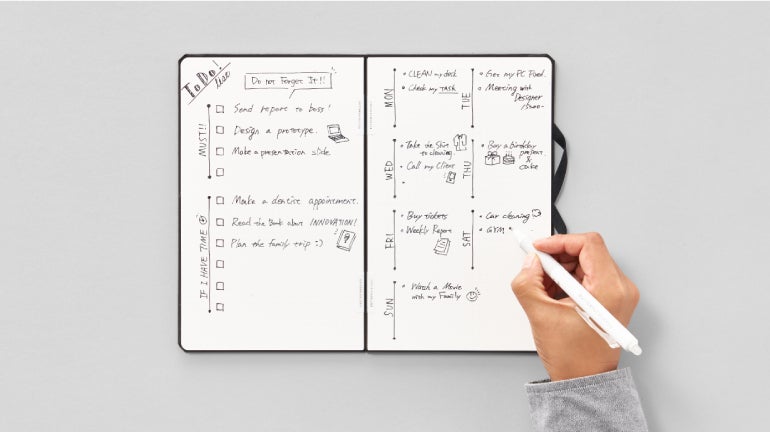 To Do!
List
Do not Forget It!!
MUST!!
Send report to boss!
Design a prototype.
Make a presentation slide.
IF I HAVE TIME
Make a dentist appointment.
Read the Book about INNOVATION!
Plan the family trip :)
MON
CLEAN my desk
Check my TASK
TUE
Get my PC Fixed.
Meeting with
Designer
WED
Take the Shirt
to cleaning.
Call my Client
THU
Buy a birthday
present
&
cake
FRI
Buy tickets
Weekly Report
SAT
Car cleaning
GYM
SUN
Watch a Movie
with my Family